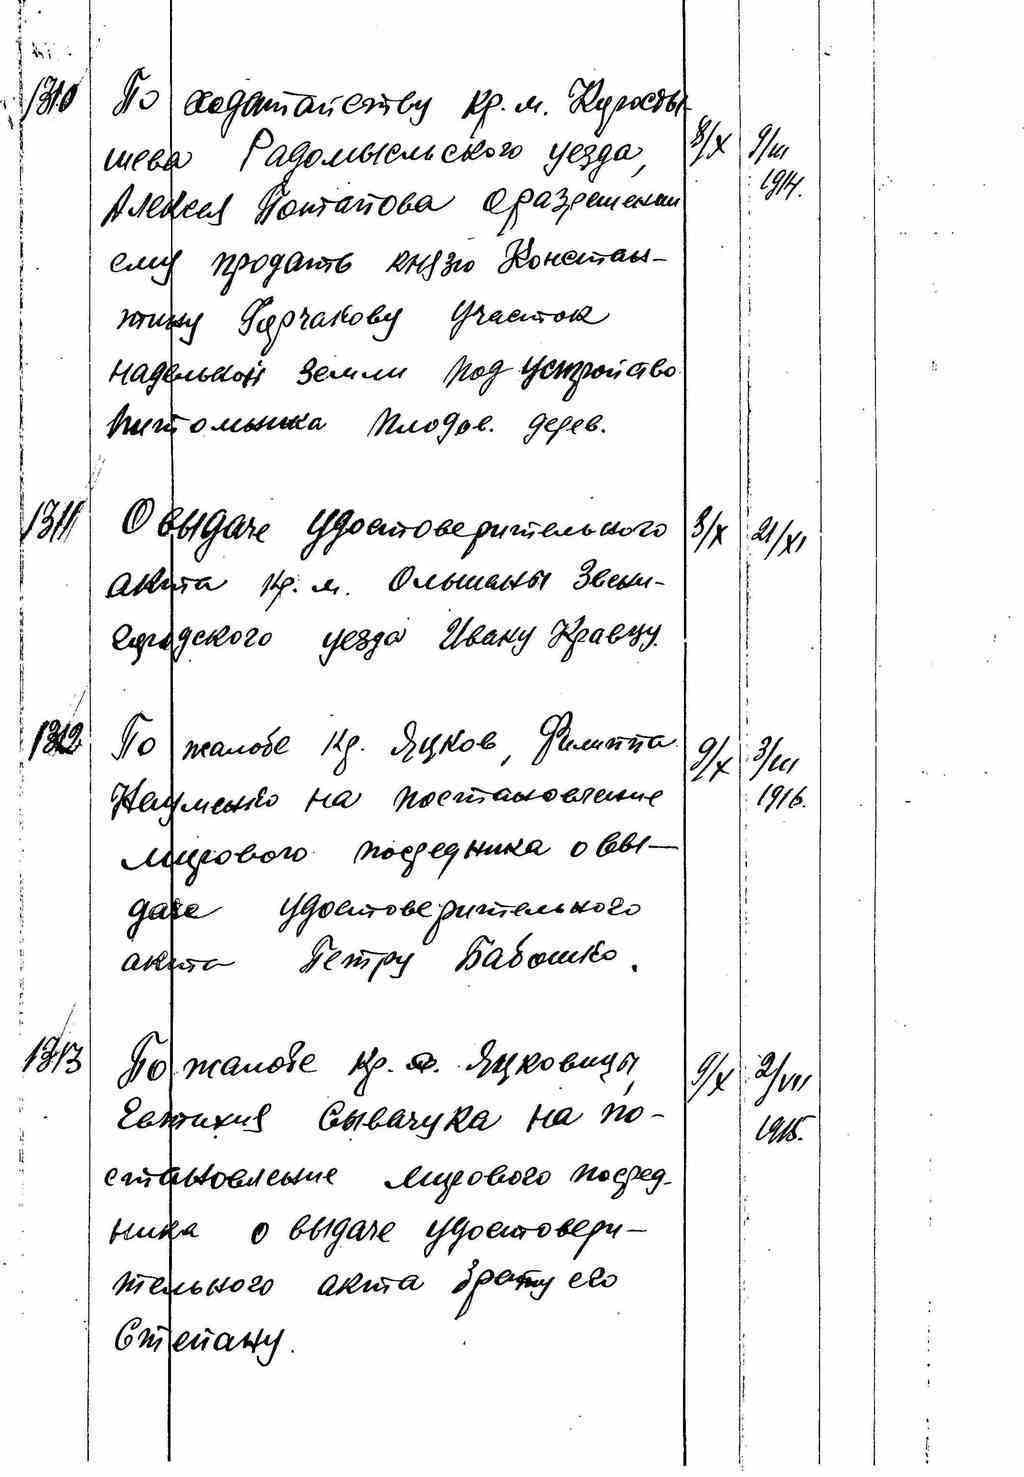 1310 По ходатайству кр. м. Коросты- 8/X 9/III
шева Радомысльского уезда, 1914.
Алексея Потапова о разрешении
ему продать князю Констан-
тину Горчакову участок
надельной земли под устройство
питомника плодов. дерев.
1311 О выдаче удостоверительного 3/X 21/XI
акта кр. м. Ольшаны Звени-
городского уезда Ивану Кравцу.
1312 По жалобе кр. Яцков, Филиппа 9/X 3/III
Науменко на постановление 1916.
мирового посредника о вы-
даче удостоверительного
акта Петру Бабошко.
1313 По жалобе кр. Яцковицы, 9/X 2/VII
Евтихия Сывачука на по- 1915.
становление мирового посред-
ника о выдаче удостовери-
тельного акта брату его
Степану.